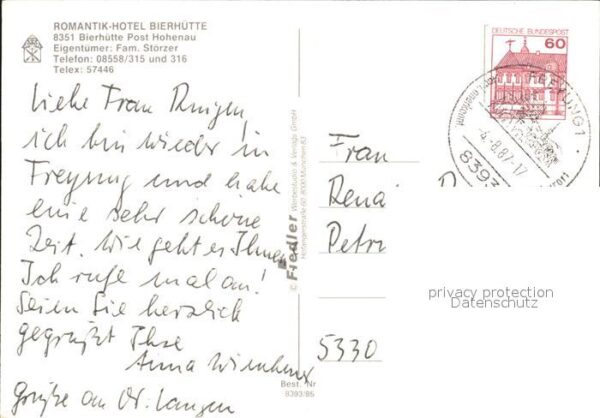 ROMANTIK-HOTEL BIERHÜTTE
8351 Bierhütte Post Hohenau
Eigentümer: Fam. Störzer
Telefon: 08558/315 und 316
Telex: 57446
Liebe Frau
ich bin wieder in
Freyung und habe
eine sehr schöne
Zeit. Wie geht es Ihnen
Ich rufe mal an!
Seien Sie herzlich
gegrüßt Ihre
Anna
Grüße an Dr. Langen
© Fiedler Werbestudio & Verlags GmbH
8000 München 83
Best. Nr
9393/86
DEUTSCHE BUNDESPOST
60
FREYUNG 1
-6.8.87-17
8393
Frau
Renai
Petri
5330
privacy protection
Datenschutz